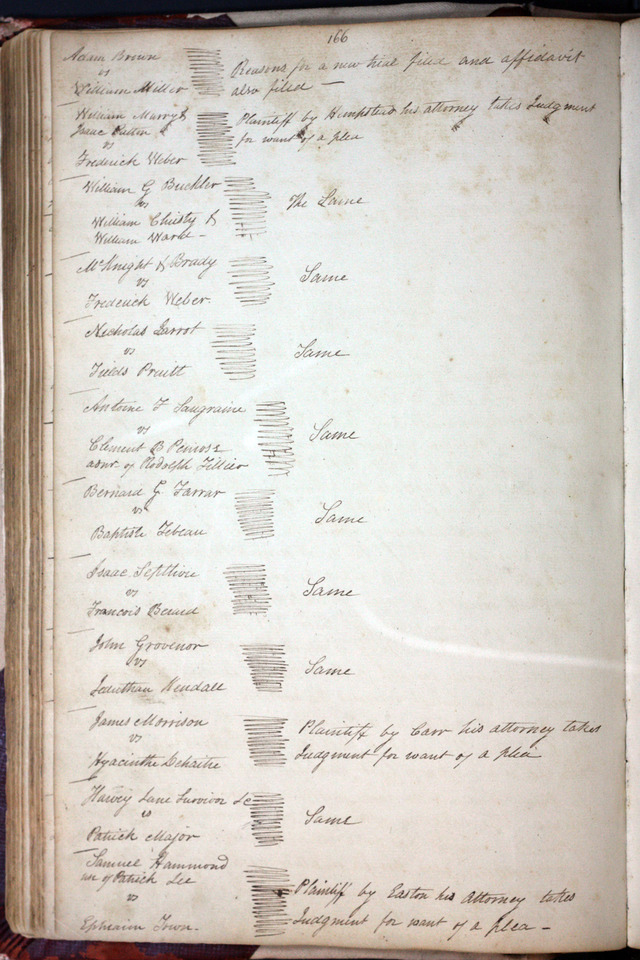 166
Adam Brown
vs
William Miller
Reasons for a new trial filed and affidavit
also filed —
William Murry &
Isaac
vs
Frederick Weber
Plaintiff by Hempstead his attorney takes Judgment
for want of a plea
William G Buckler
vs
William Christy &
William Ward -
The Same
McKnight & Brady
vs
Frederick Weber
Same
Nicholas Jarrot
vs
Fields Pruitt
Same
Antoine F Saugraine
vs
Clement B Penrose
admr of Rodolph Tillier
Same
Bernard G Farrar
vs
Baptiste Tebeau
Same
Isaac
vs
Francois Berard
Same
John Grovenor
vs
Kendall
Same
James Morrison
vs
Hyacinthe Dehaitre
Plaintiff by Carr his attorney takes
Judgment for want of a plea
Harvey Lane Survivor &c
vs
Patrick Major
Same
Samuel Hammond
use of Patrick Lee
vs
Ephraim Town -
Plaintiff by Easton his attorney takes
Judgment for want of a plea -